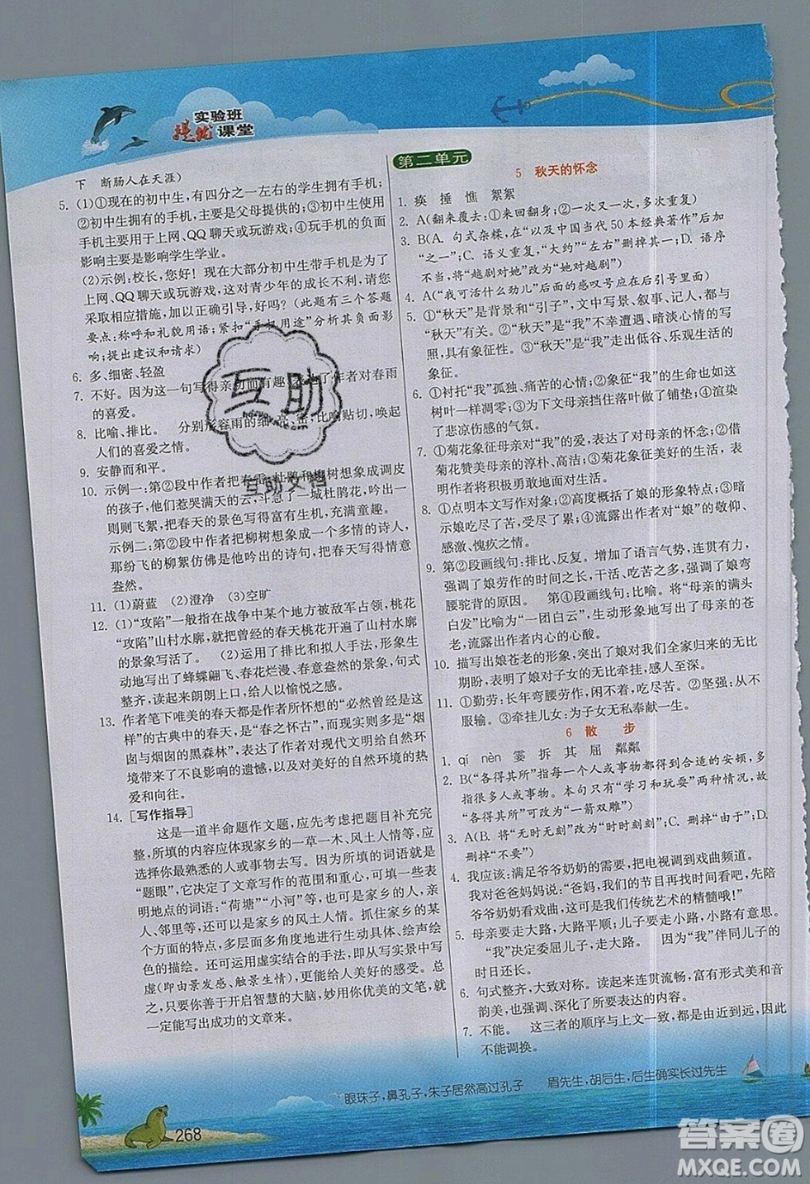 实验班
提优课堂
下　断肠人在天涯)
5. (1)①现在的初中生，有四分之一左右的学生拥有手机；
②初中生拥有的手机，主要是父母提供的；③初中生使用
手机主要用于上网、QQ聊天或玩游戏；④手机的负面
影响主要是影响学习。
(2)示例：校长，您好！现在大部分初中生带手机是为了
上网、QQ聊天或玩游戏，这对青少年的成长不利，请您
采取相应措施，加以正确引导，好吗？(此题有三个答题
要点：称呼和礼貌用语；紧扣“
用途”分析其负面影
响；提出建议和请求)
6. 多、细密、轻盈
7. 不好。因为这一句写得亲切而有趣，
了作者对春雨
的喜爱。
8. 比喻、排比。　分别形容雨的细、亮、密，比喻贴切，唤起
人们的喜爱之情。
9. 安静而和平。
10. 示例一：第②段中作者把春雪、杜鹃和柳树想象成调皮
的孩子，他们惹哭满天的云，吵
一城杜鹃花，吟出一
则则飞絮，把春天的景色写得富有生机，充满童趣。
示例二：第②段中作者把柳树想象成一个多情的诗人，
那飞扬的柳絮仿佛是他吟出的诗句，把春天写得诗意
盎然。
11. (1)蔚蓝　(2)澄净　(3)空旷
12. (1)“攻陷”一般指在战争中某个地方被敌军占领，桃花
“攻陷”山村水廓，就把曾经的春天桃花开遍了山村水廓
的景象写活了。　(2)运用了排比和拟人手法，形象生
动地写出了蜂蝶翩飞、春花烂漫、春意盎然的景象，句式
整齐，读起来朗朗上口，给人以愉悦之感。
13. 作者笔下唯美的春天都是作者怀想的“必然曾经是这
样的”古典中的春天，是“春之怀古”，而现实则多是“烟
囱与烟囱的黑森林”，表达了作者对现代文明给自然环
境带来了不良影响的遗憾，以及对美好的自然环境的热
爱和向往。
14. [写作指导]
这是一道半命题作文题，应先考虑把题目补充完
整，所填的内容应体现家乡的一草一木、风土人情等，选
择你最熟悉的人或事物去写。因为所填的词语就是
“题眼”，它决定了文章写作的范围和重心，可以填地点
明地点的词语：“荷塘”“小河”等，也可以写家乡的亲
人、邻里等，还可以是家乡的风土人情。抓住家乡某个
方面的特点，多层面、多角度地加以具体生动、绘声绘
色的描绘。还可以运用虚实结合的手法，从写实景中写
虚(即由景发感、触景生情)，给人美好的感受。总
之，你将无形的开启智慧的大脑，妙用你优美的文笔，就
一定能写出成功的文章来。
第二单元
5　秋天的怀念
1. 痪　捶　憔　絮絮
2. A(翻来覆去：①来回翻身；②一次又一次，多次重复)
3. B(A. 句式杂糅，在“以及中国当代50本经典著作”后加
“之一”；C. 语义重复，“大约”“左右”删掉其一；D. 语序
不当，将“越剧对她”改为“她对越剧”)
4. A(“我可活什么劲儿”后面的感叹号应在后引号里面)
5. ①“秋天”是背景和“引子”，文中写景、叙事、记人，都与
“秋天”有关。②“秋天”是“我”不幸遭遇、暗淡心情的写
照，具有象征性。③“秋天”是“我”走出低谷、乐观生活的
象征。
6. ①衬托“我”孤独、痛苦的心情；②象征“我”的生命也如这
树叶一样凋零；③为下文母亲挡住窗户做了铺垫；④渲染
了悲凉伤感的气氛。
7. ①菊花象征母亲对“我”的爱，表达对母亲的怀念；②借
菊花赞美母亲的淳朴、高洁；③菊花具有象征意义，表
明作者将积极勇敢地面对生活。
8. ①点明本文写作对象；②高度概括了娘的形象特点；③暗
示娘吃尽了苦、受尽了累；④流露出作者对“娘”的敬仰、
感激、愧疚之情。
9. 第②段画线句：排比、反复。增加了语言气势，连贯有力，
强调了娘劳作的时间之长，干活、吃苦之多，强调了娘弯
腰驼背的原因。　第④段画线句：将“母亲的满头
白发”比喻为“一团白云”，生动形象地写出了母亲的苍
老，流露出作者内心的心酸。
10. 描写出娘苍老的形象，突出了娘对我们全家归来的无比
期盼，表明了母亲对子女的无比牵挂，感人至深。
11. ①勤劳：长年弯腰劳作，闲不着，吃尽苦。②坚强：从不
服输。③牵挂儿女：为子女无私奉献一生。
6　散　步
1. qí　nèn　霎　拆　其　屈　粼粼
2. B(“各得其所”指每一个人或事物都得到合适的安顿，多
指很多人或事物。本句只有“学习和玩耍”两种事物，
“各得其所”可改为“一箭双雕”)
3. A(B. 将“无时无刻”改为“时时刻刻”；C. 删掉“由于”；D.
删掉“不要”)
4. 我应该：满足爷爷奶奶的需要，把电视调到戏曲频道。
我对爸爸妈妈说：“爸妈，我们节目有时间再看，先陪
爷爷奶奶看戏曲，这可是我们传统艺术的精髓哦！”
5. 母亲要走大路，大路平顺；儿子要走小路，小路有意思。
“我”决定委屈儿子，走大路。　因为“我”伴同儿子的
时日还长。
6. 句式整齐，大致对称。读起来连贯流畅，富有形式美和音
韵美，也强调、深化了所要表达的内容。
7. 不能。　这三者的顺序与上文一致，都是由近到远，不
能调换。
眼珠子，鼻孔子，朱子居然高过孔子　眉先生，胡后生，后生确实长过先生
268
互助
互助文档
答案圈
MXQE.COM